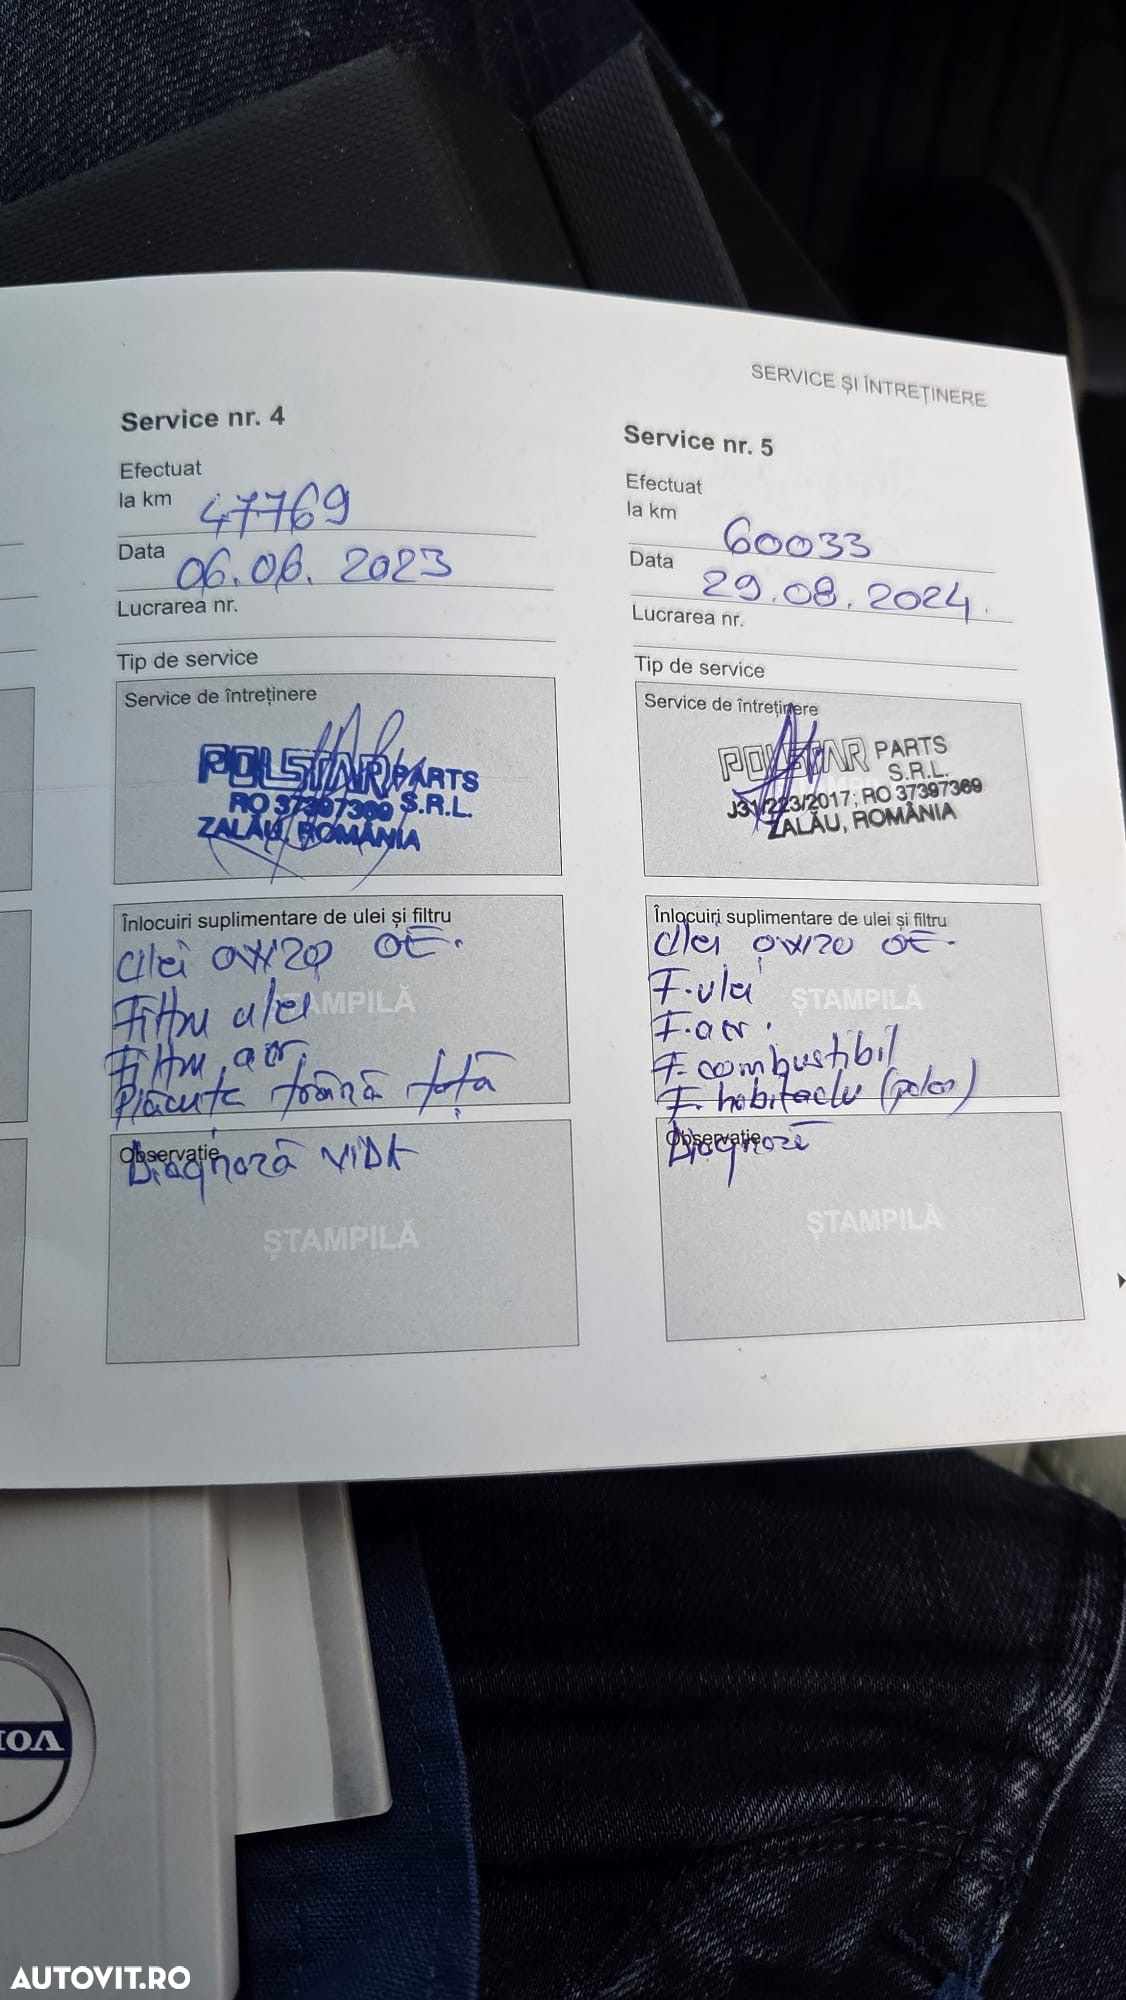 SERVICE ȘI ÎNTREȚINERE
Service nr. 4
Efectuat
la km 47769
Data 06.06.2023
Lucrarea nr.
Tip de service
Service de întreținere
POLSTAR PARTS
RO 37397369 S.R.L.
ZALĂU, ROMÂNIA
Înlocuiri suplimentare de ulei și filtru
Ulei 0W20 OE.
Filtru ulei
ȘTAMPILĂ
Filtru aer
Plăcuțe frână față
Observație
Diagnoză VIDA
ȘTAMPILĂ
Service nr. 5
Efectuat
la km 60033
Data 29.08.2024.
Lucrarea nr.
Tip de service
Service de întreținere
POLSTAR PARTS
S.R.L.
J31/223/2017; RO 37397369
ZALĂU, ROMÂNIA
Înlocuiri suplimentare de ulei și filtru
Ulei 0W20 OE.
F. ulei
ȘTAMPILĂ
F. aer.
F. combustibil
F. habitaclu (polen)
Observație
Diagnoză
ȘTAMPILĂ
AUTOVIT.RO